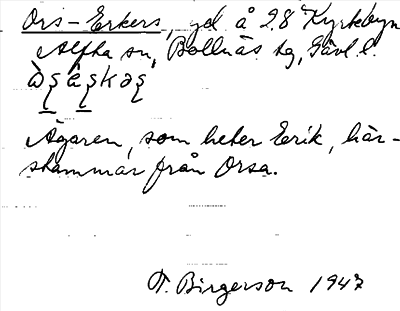 Ors-Erkers, gd å 2⁸ Kyrkbyn
Alfta sn, Bollnäs tg, Gävl. l.
Ägaren, som heter Erik, här-
stammar från Orsa.
T. Birgerson 1947